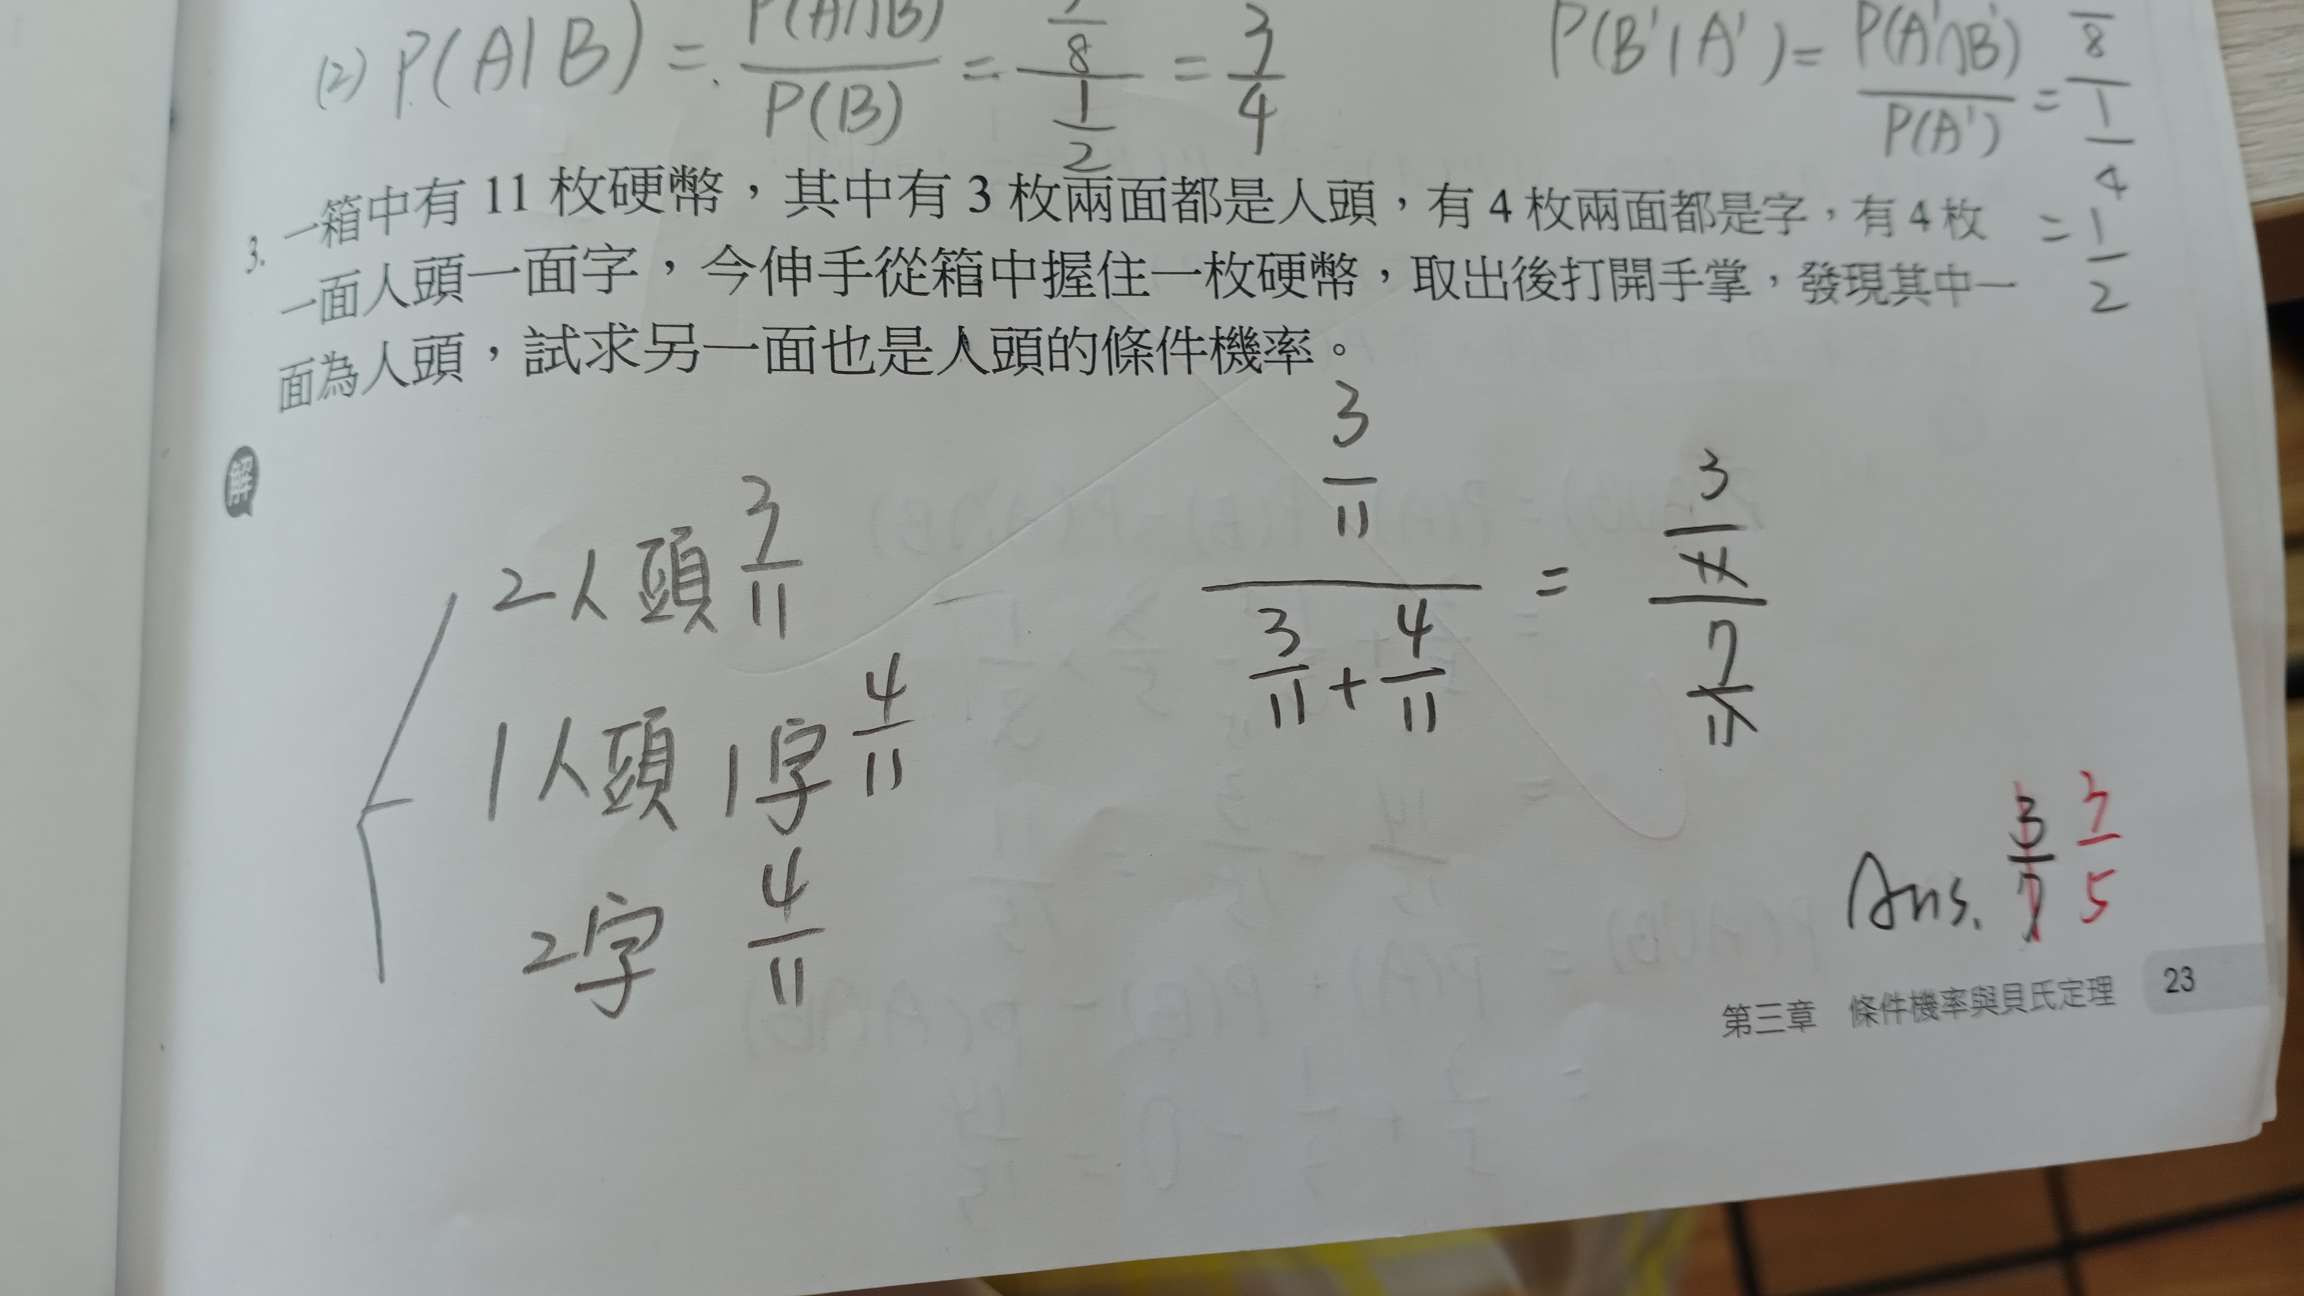 (2) P(A|B) = P(A∩B) / P(B) = 3/8 / 1/2 = 3/4
P(B'|A') = P(A'∩B') / P(A') = /8 / 1/4
= 1/2
3. 一箱中有 11 枚硬幣，其中有 3 枚兩面都是人頭，有 4 枚兩面都是字，有 4 枚
一面人頭一面字，今伸手從箱中握住一枚硬幣，取出後打開手掌，發現其中一
面為人頭，試求另一面也是人頭的條件機率。
解
2人頭 3/11
1人頭 1字 4/11
2字 4/11
3/11 / 3/11 + 4/11 = 3/11 / 7/11
Ans. 3/7 3/5
第三章 條件機率與貝氏定理 23